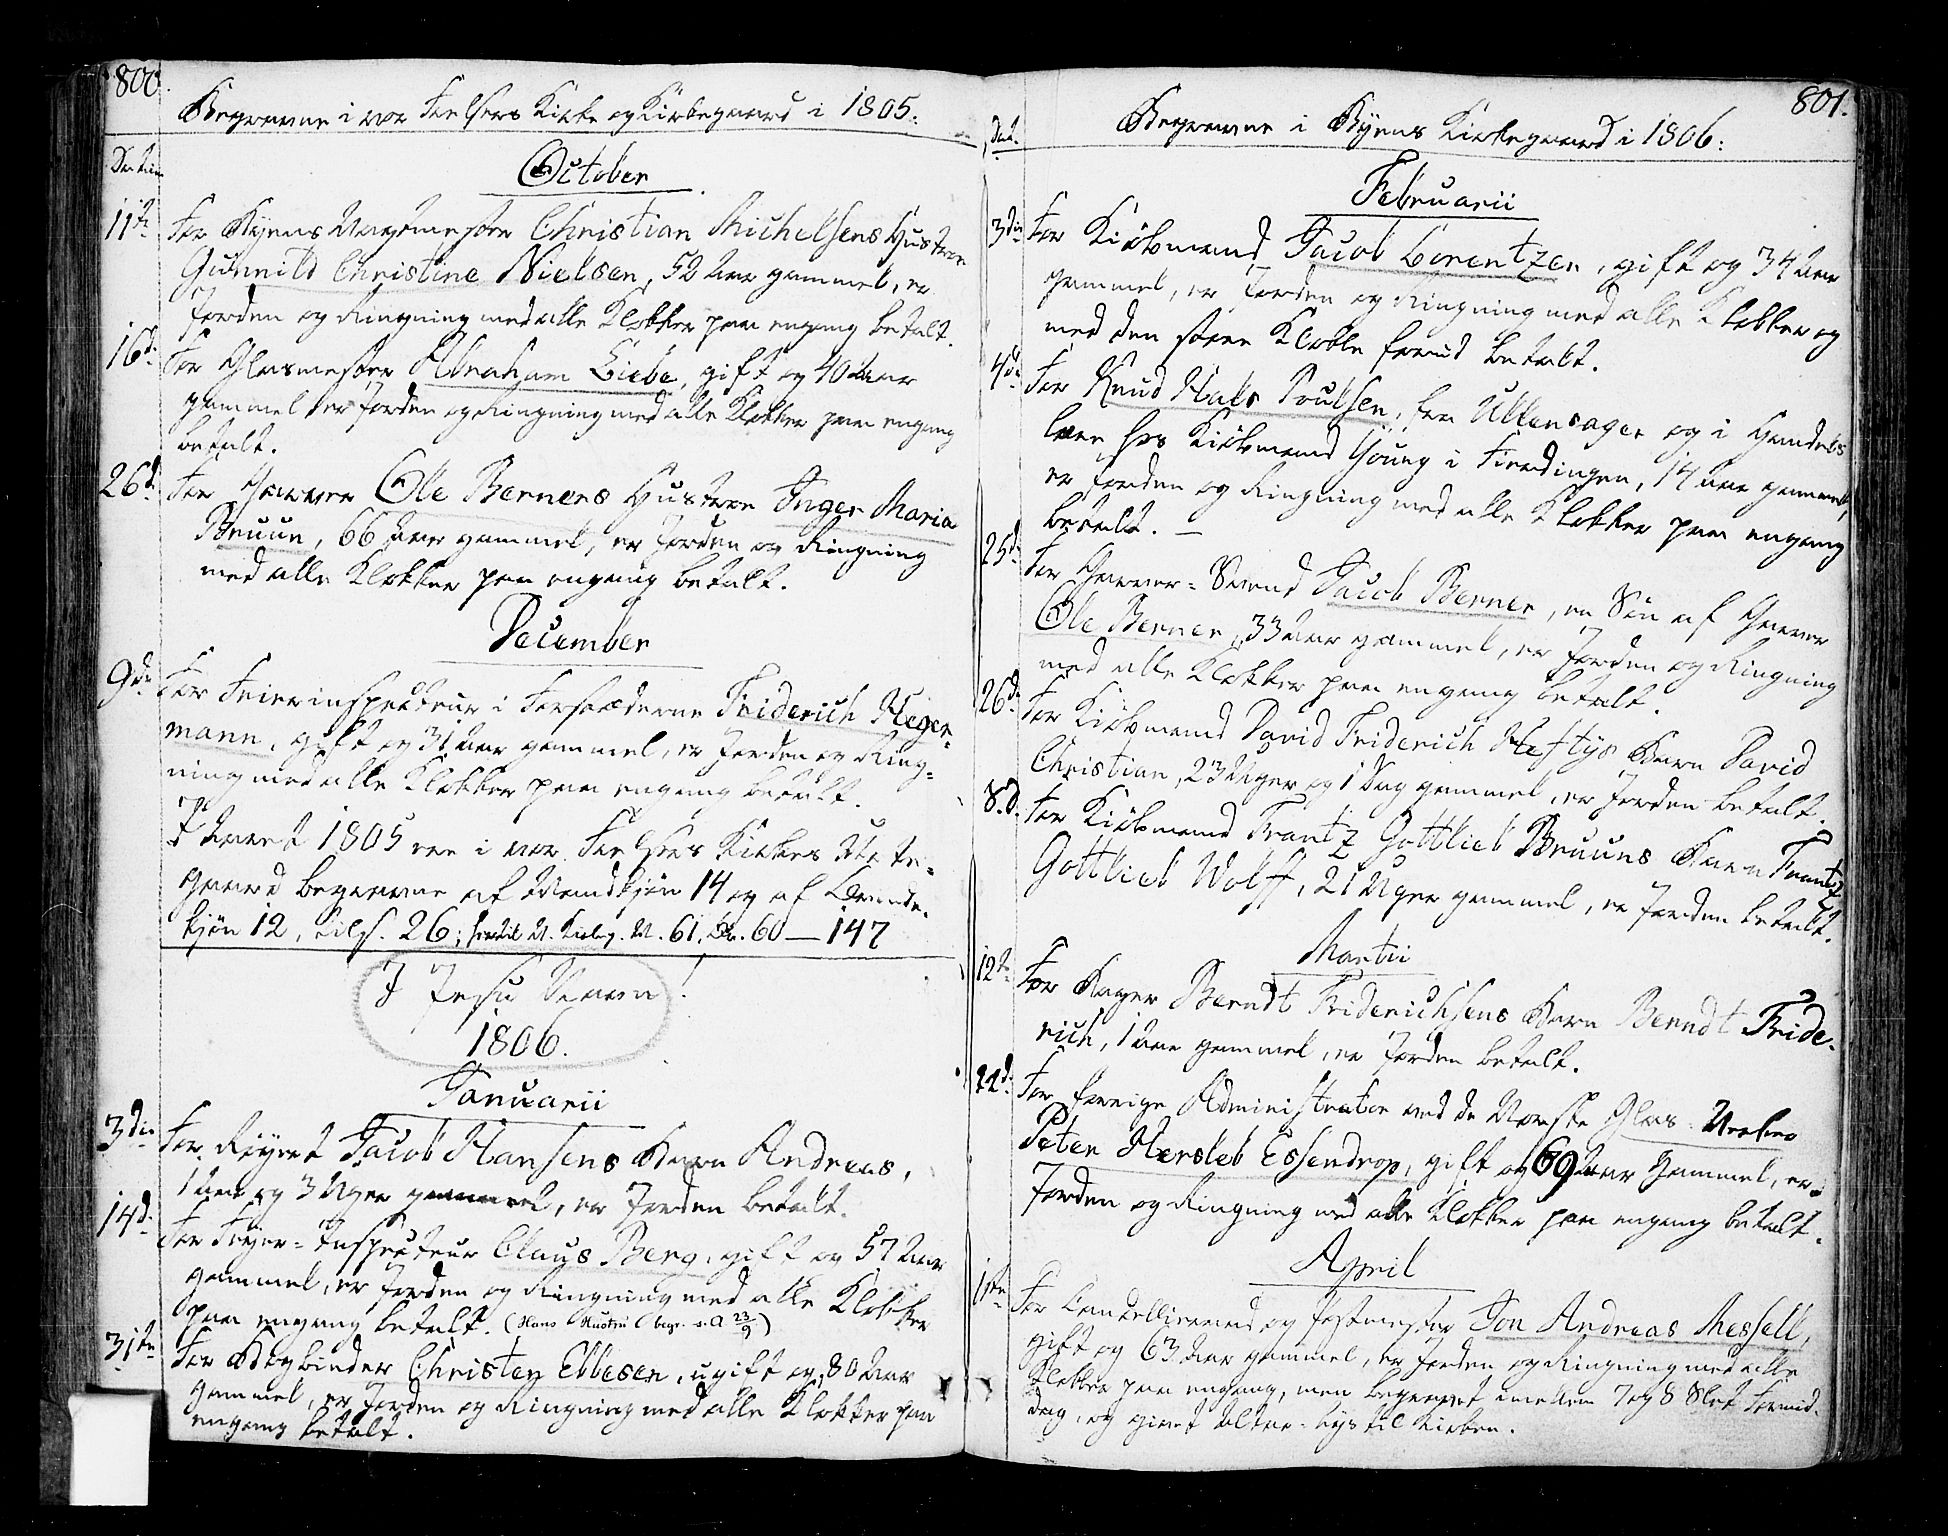 800.
Begravne i vor Frelsers Kirke og Kirkegaard i 1805.
Datum
October
11te For Byens Vagtmester Christian Michelsens Hustrue
Gunnild Christine Nielsen, 52 Aar gammel, er
Jorden og Ringning med alle Klokker paa engang betalt.
16de For Glasmester Abraham Liebe, gift og 40 Aar
gammel er Jorden og Ringning med alle Klokker paa engang
betalt.
26de For Garver Ole Berners Hustrue Inger Maria
Bruun, 66 Aar gammel, er Jorden og Ringning
med alle Klokker paa engang betalt.
December
9de For Feierinspecteur i Forstæderne Friderich Heger-
mann, gift og 31 Aar gammel, er Jorden og Ring-
ning med alle Klokker paa engang betalt.
I Aaret 1805 ere i vor Frelsers Kirkes Uhte-
gaard begravne af Mandkjøn 14 og af Qvinde-
kjøn 12, tils. 26; M. 61, Qv. 60 — 147
I Jesu Navn!
1806.
Januarii
3die For Jacob Hansens Barn Andreas,
1 Aar og 3 Uger gammel, er Jorden betalt.
14de For Feyer-Inspecteur Claus Berg, gift og 57 Aar
gammel, er Jorden og Ringning med alle Klokker
paa engang betalt. (Hans Hustru begr. s. A 23/9)
31te For Bogbinder Christen Ebbesen, ugift og 80 Aar
gammel, er Jorden og Ringning med alle Klokker paa
engang betalt.
801.
Begravne i Byens Kirkegaard i 1806:
Dat.
Februarii
3die For Kiøbmand Jacob Lorentzen, gift og 34 Aar
gammel, er Jorden og Ringning med alle Klokker og
med den store Klokke forud betalt.
4de For Knud Hals Poulsen, fra Ullensager og i Handels
lære hos Kiøbmand Young i Fierdingen, 14 Aar gammel,
er Jorden og Ringning med alle Klokker paa engang
betalt. —
25de For Garver-Svend Jacob Berner, en Søn af Garver
Ole Berner, 33 Aar gammel, er Jorden og Ringning
med alle Klokker paa engang betalt.
26de For Kiøbmand David Friderich Heftÿs Barn David
Christian, 23 Uger og 1 Dag gammel, er Jorden betalt.
S.D. For Kiøbmand Frantz Gottlieb Bruuns Barn Frantz
Gottlieb Wolff, 21 Uger gammel, er Jorden betalt.
Martii
12te For Bager Berndt Friderichsens Barn Berndt Fride-
rich, 1 Aar gammel, er Jorden betalt.
22de For forrige Administrator ved de Norske Glas-Verker
Peter Hersleb Essendrop, gift og 69 Aar gammel, er
Jorden og Ringning med alle Klokker paa engang betalt.
April
1ste For Cancelliraad og Postmester Jon Andreas Messell,
gift og 63 Aar gammel, er Jorden og Ringning med alle
Klokker paa engang, men begravet imellem 7 og 8 Slet Formid-
dag, og givet Altar-Lys til Kirken.